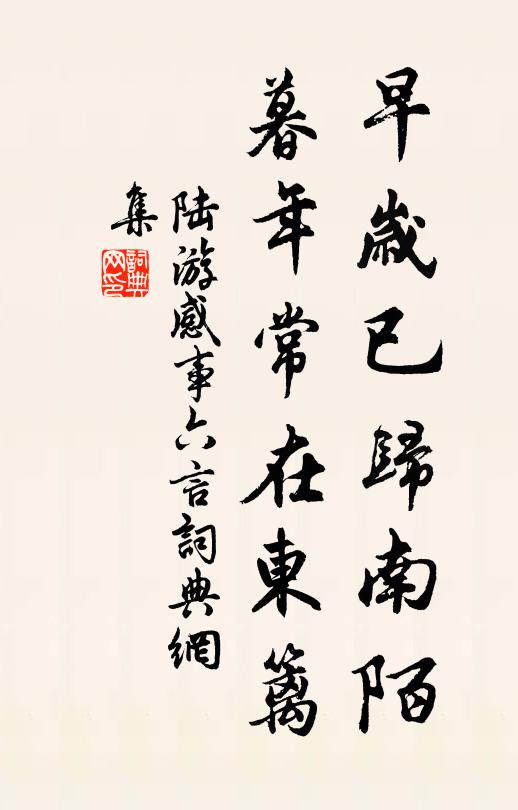 早歲已歸南陌
暮年常在東籬
陸游感事六言詞典網
集
詞典网印